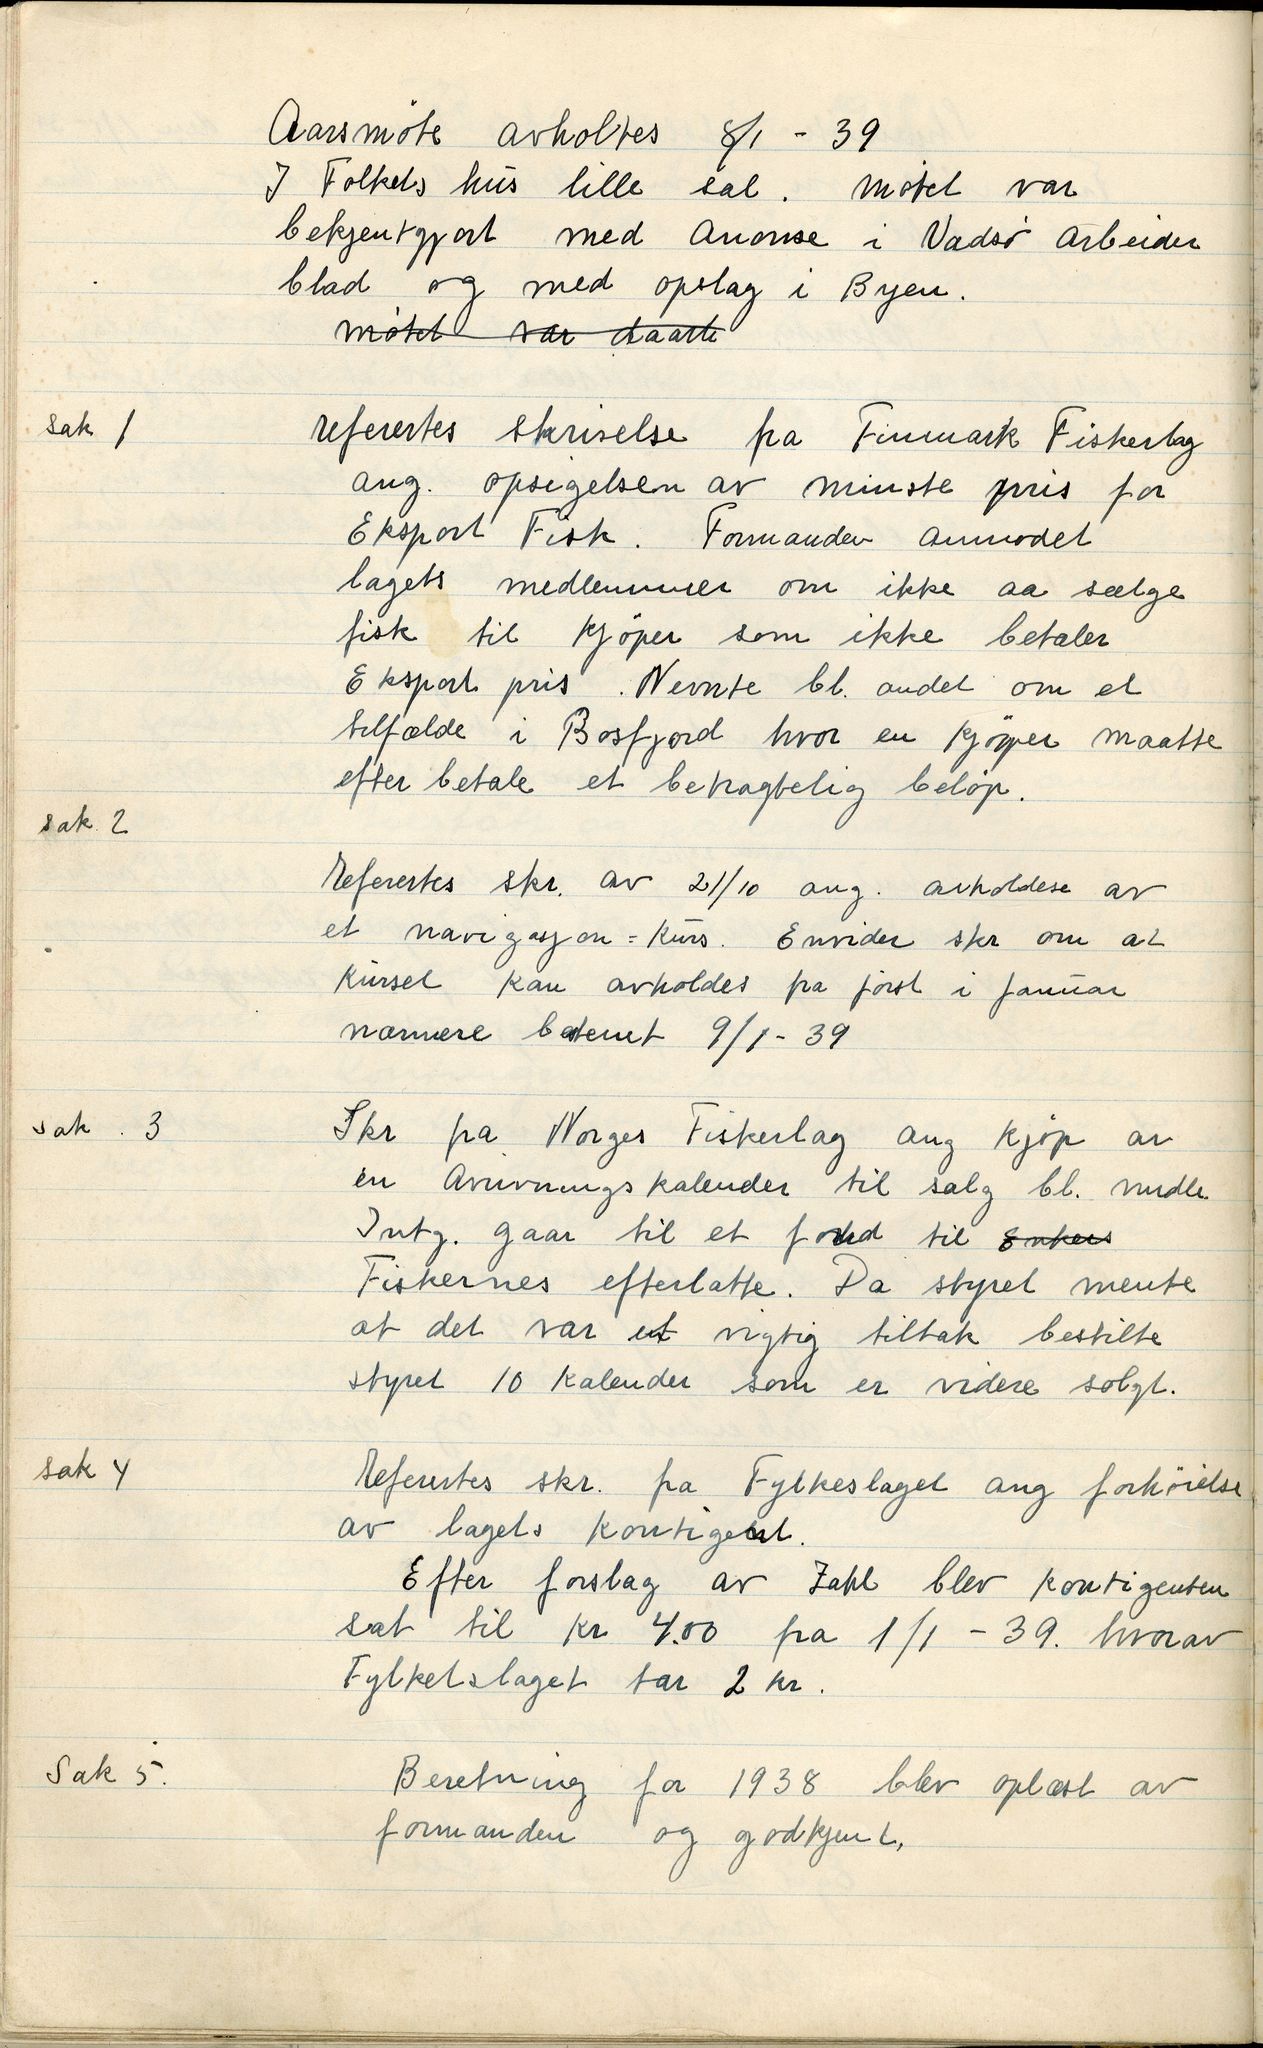 Aarsmöte avholtes 8/1 - 39
I Folkets hus lille sal. Mötet var
bekjentgjort med Anonse i Vadsö Arbeider
blad og med opslag i Byen.
Mötet var daarli
Sak 1
Referertes skrivelse fra Finmark Fiskerlag
ang. opsigelsen av minste pris for
Eksport Fisk. Formanden anmodet
lagets medlemmer om ikke aa sælge
fisk til kjöper som ikke betaler
Eksport pris. Nevnte bl. andet om et
tilfælde i Bosfjord hvor en kjöper maatte
efter betale et betragtelig belöp.
sak 2
Referertes skr. av 21/10 ang. avholdese av
et navigasjon = kurs. Envider skr om at
kurset kan avholdes fra först i Januar
nærmere bestemt 9/1 - 39
sak. 3
Skr fra Norges Fiskerlag ang kjöp av
en Avrivningskalender til salg bl. medle.
Intg. gaar til et fond til Enkers
Fiskernes efterlatte. Da styret mente
at det var et vigtig tiltak bestilte
styret 10 kalender som er videre solgt.
sak 4
Referertes skr. fra Fylkeslaget ang forhöielse
av lagets kontigent.
Efter forslag av Zahl blev kontigenten
sat til kr 4.00 fra 1/1 - 39. hvorav
Fylketslaget tar 2 kr.
Sak 5.
Beretning for 1938 blev oplæst av
formanden og godkjent.